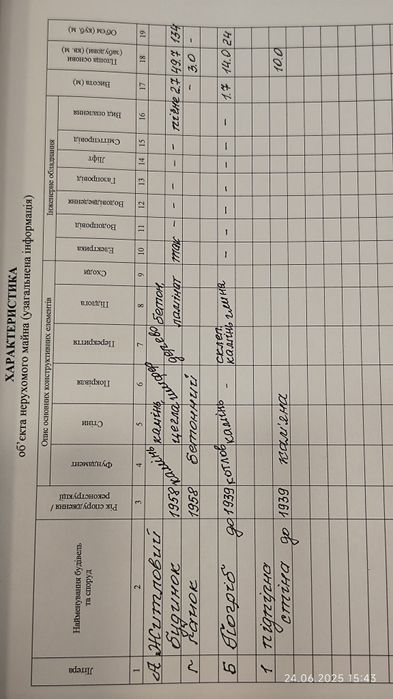 ХАРАКТЕРИСТИКА
об'єкта нерухомого майна (узагальнена інформація)
Літера
Найменування будівель та споруд
Рік спорудження / реконструкції
Опис основних конструктивних елементів
Фундамент
Стіни
Покрівля
Перекриття
Підлога
Сходи
Інженерне обладнання
Електрика
Водопровід
Водовідведення
Газопровід
Ліфт
Сміттєпровід
Вид опалення
Висота (м)
Площа основи (забудови) (кв. м)
Об'єм (куб. м)
1 2 3 4 5 6 7 8 9 10 11 12 13 14 15 16 17 18 19
А Житловий камінь, шифер дерево бетон,
будинок 1958 камінь цегла ламінат так - - - - - пічне 2.7 49.7 134
г Ганок 1958 бетонний - 3.0 -
Б Погріб до 1939 котлов камінь - склеп. камінь глина - - - - - - - 1.7 14.0 24
1 підпірна
стіна до 1939 кам'яна 10.0
24.06.2025 15:43